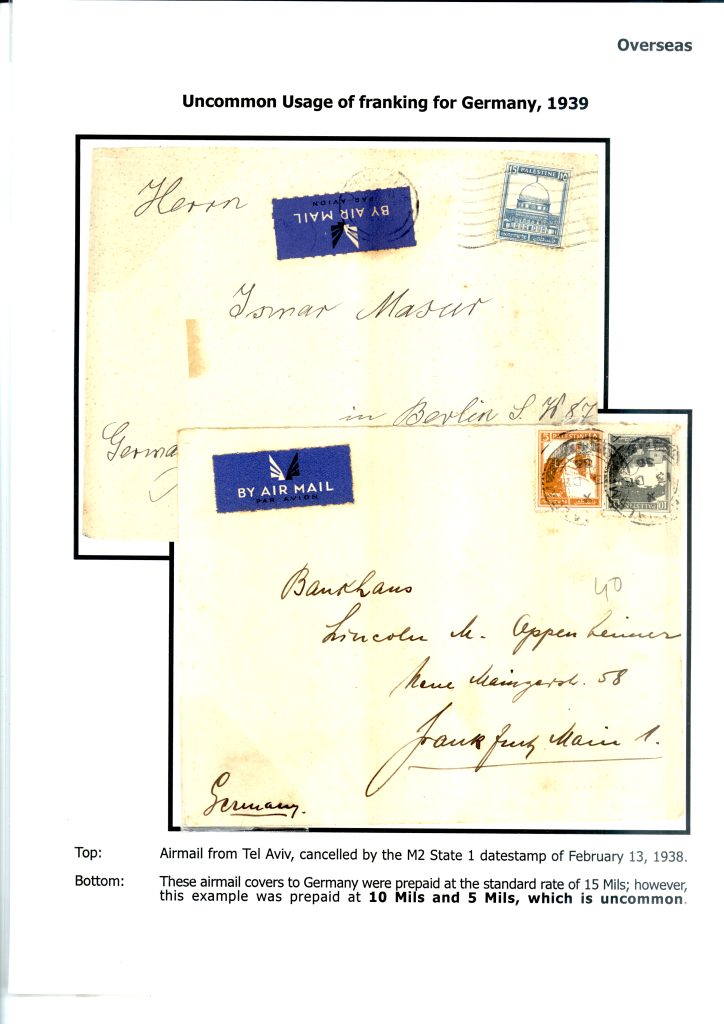 Overseas
Uncommon Usage of franking for Germany, 1939
Herrn
BY AIR MAIL
PAR AVION
15 PALESTINE
Ismar Masur
in Berlin S. W 87
Germa
BY AIR MAIL
PAR AVION
5 PALESTINE
PALESTINE 10
40
Bankhaus
Lincoln M. Oppenheimer
Neue Mainzerstr. 58
Frankfurt Main 1.
Germany.
Top: Airmail from Tel Aviv, cancelled by the M2 State 1 datestamp of February 13, 1938.
Bottom: These airmail covers to Germany were prepaid at the standard rate of 15 Mils; however,
this example was prepaid at 10 Mils and 5 Mils, which is uncommon.